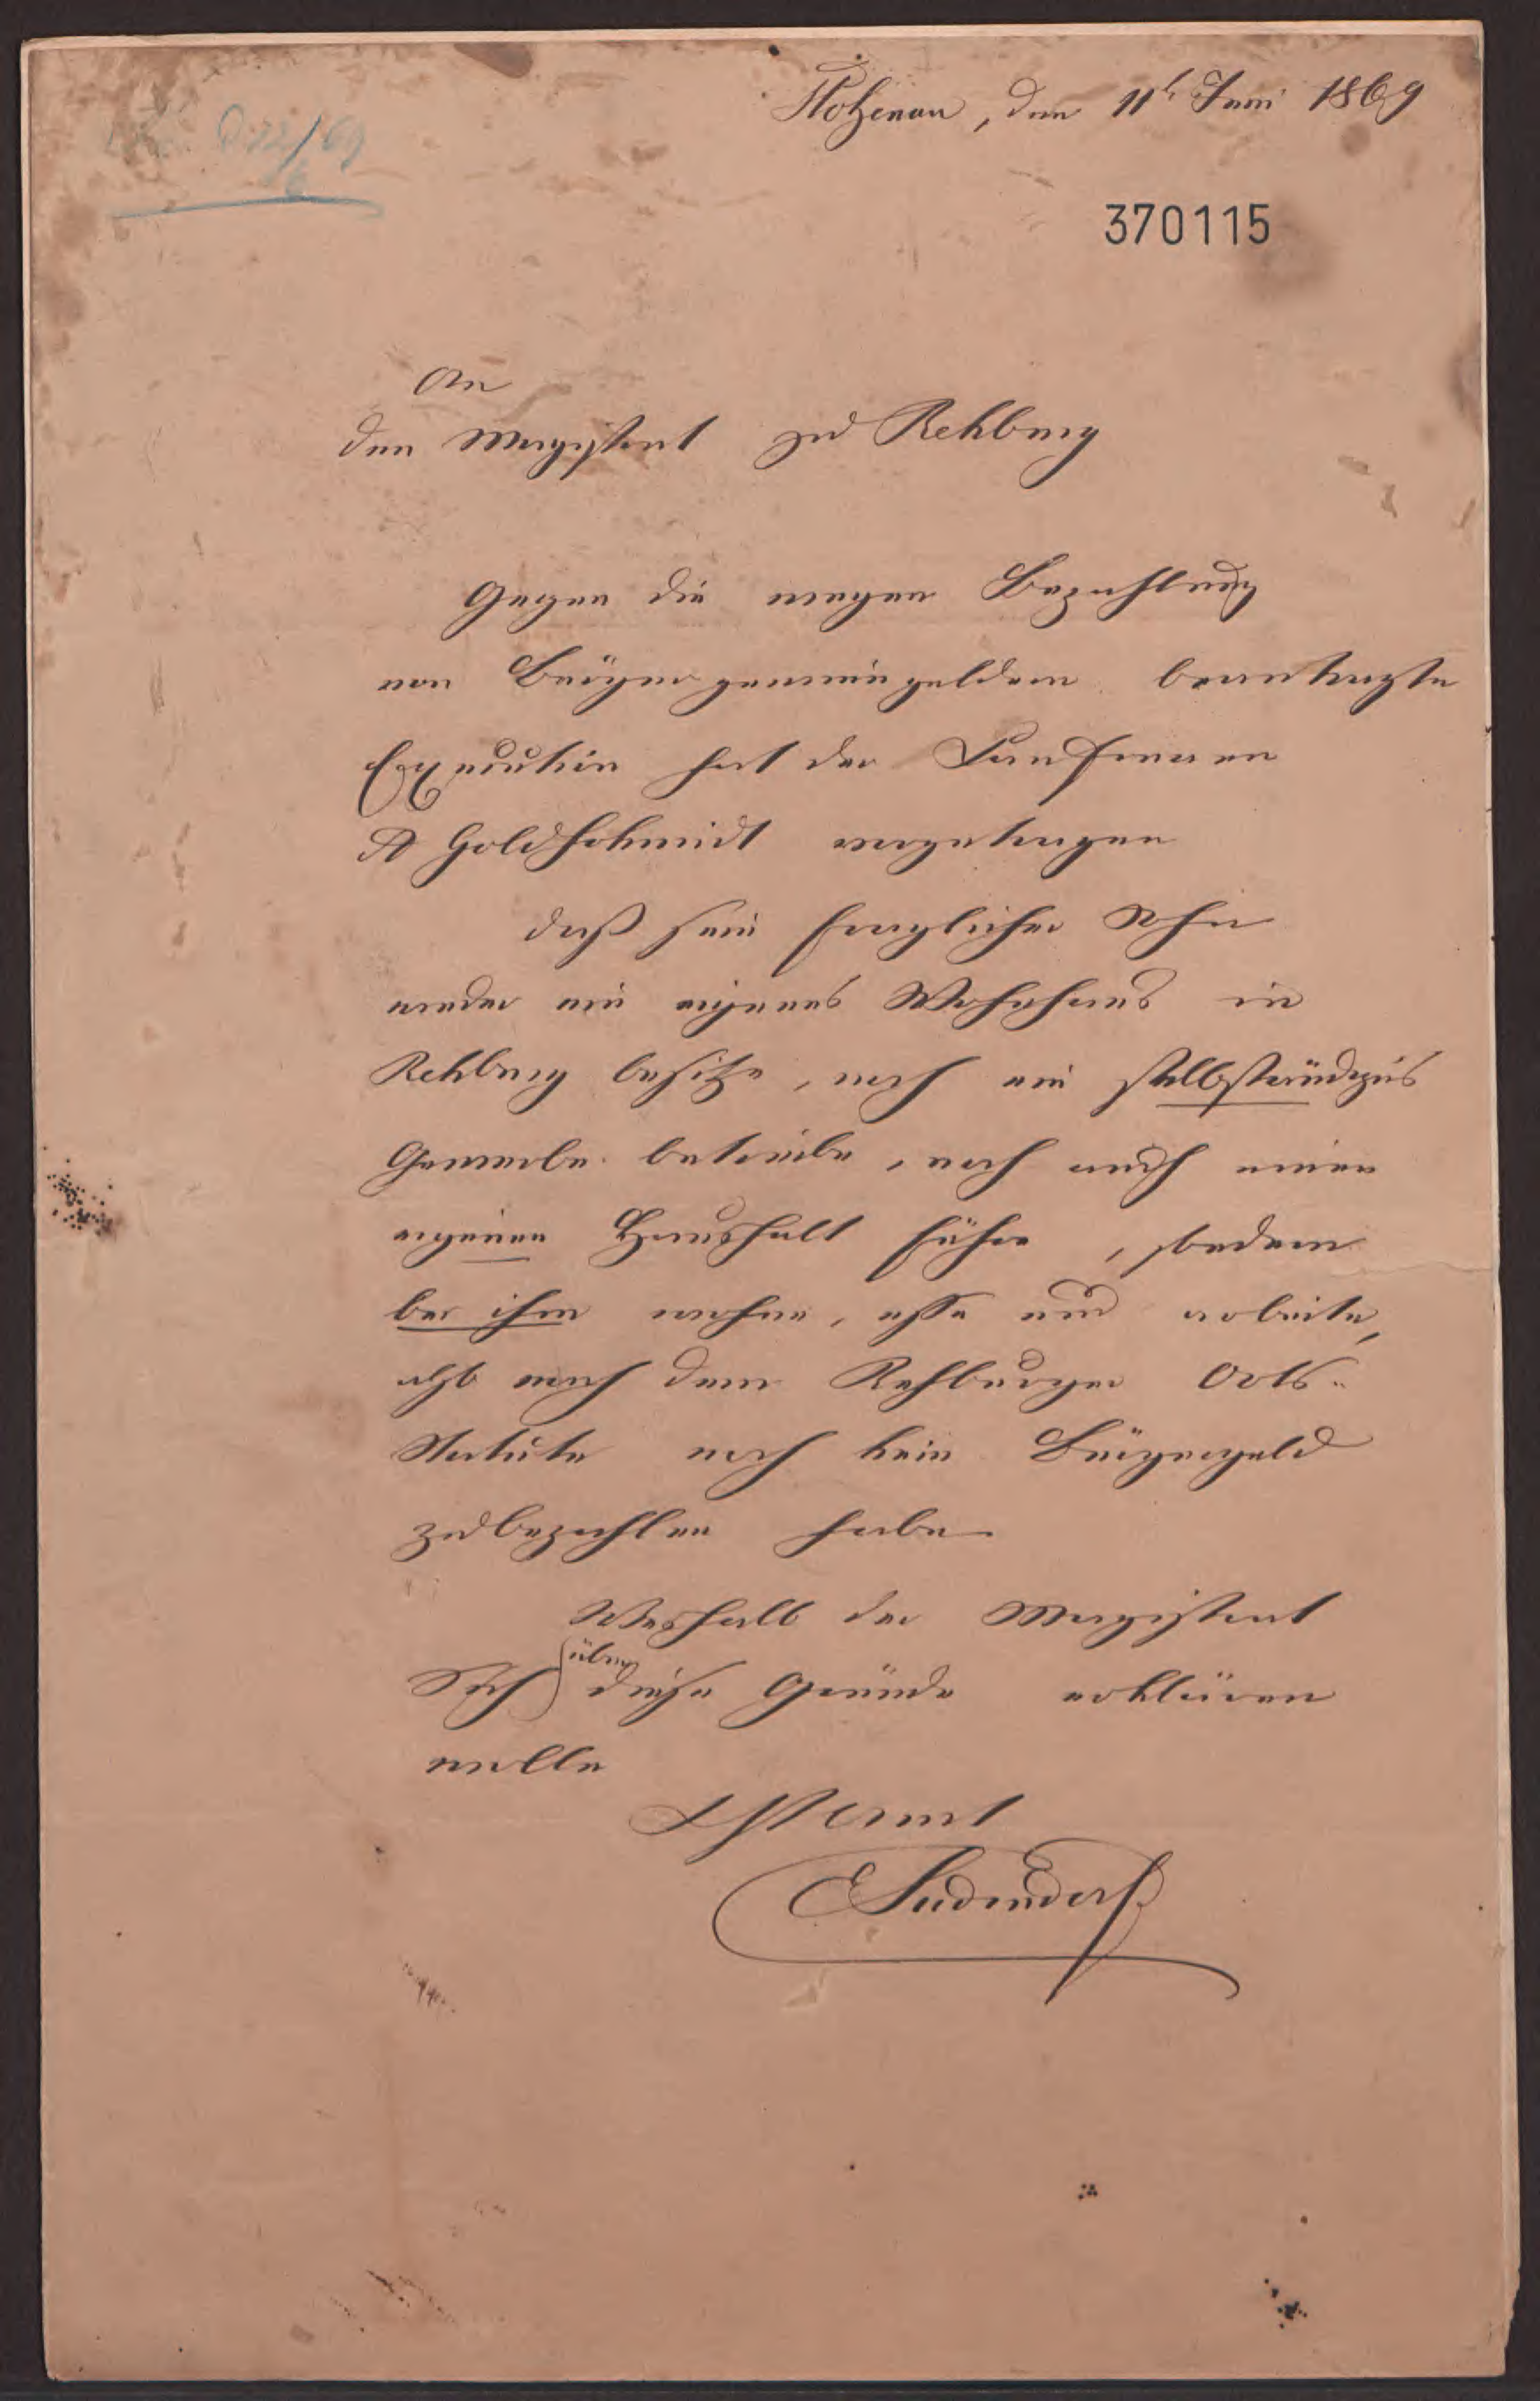 Stolzenau, den 11t Juni 1869
370115
An
den Magistrat zu Rehburg
Gegen die wegen Bezahlung
von Bürgergewinngeldern beantragte
Execution hat der Kaufmann
A Goldschmidt vorgetragen
daß sein fraglicher Sohn
weder ein eigenes Wohnhaus in
Rehburg besitze, noch ein selbständiges
Gewerbe betreibe, noch auch einen
eigenen Haushalt führe, sondern
bei ihm wohne, esse und arbeite,
also nach dem Rehburger Orts-
Statute noch kein Bürgergeld
zu bezahlen habe.
Weshalb der Magistrat
Sich über diese Gründe erklären
wolle
Amt
Sudendorf